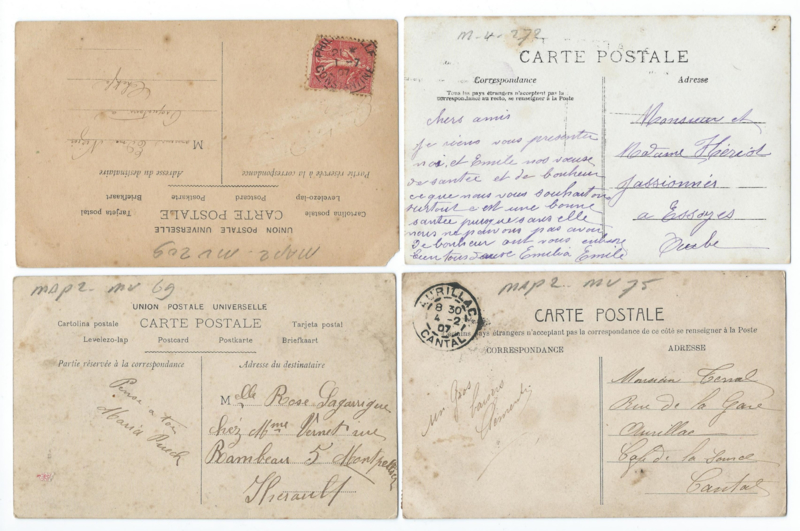 UNION POSTALE UNIVERSELLE
CARTE POSTALE
Cartolina postale
Tarjeta postal
Levelezo-lap
Postcard
Postkarte
Briefkaart
Partie réservée à la correspondance
Adresse du destinataire
M
MAP2 - MV 209
M-4-272
CARTE POSTALE
Correspondance
Adresse
Tous les pays étrangers n'acceptent pas la
correspondance au recto, se renseigner à la Poste
Chers amis
je viens vous presenter
moi et Emile nos vœux
de santee et de bonheur
ce que nous vous souhaitons
surtout c est une bonne
santee puisque sans elle
nous ne pouvons pas avoir
de bonheur
Emilia Emile
Monsieur et
Madame Hériot
à Essoyes
Aube
MAP2 - MV 69
UNION POSTALE UNIVERSELLE
Cartolina postale
CARTE POSTALE
Tarjeta postal
Levelezo-lap
Postcard
Postkarte
Briefkaart
Partie réservée à la correspondance
Adresse du destinataire
Pense a toi
Maria
Melle Rose Lagarrigue
chéz Mme Vernet rue
Rambeau 5 Montpellier
Hérault
MAP2 - MV 75
AURILLAC
8 30
4 -2
07
CANTAL
CARTE POSTALE
pays étrangers n'acceptent pas la correspondance de ce côté se renseigner à la Poste
CORRESPONDANCE
ADRESSE
un Gros
Clément
Monsieur
Rue de la Gare
Aurillac
Café de la Source
Cantal